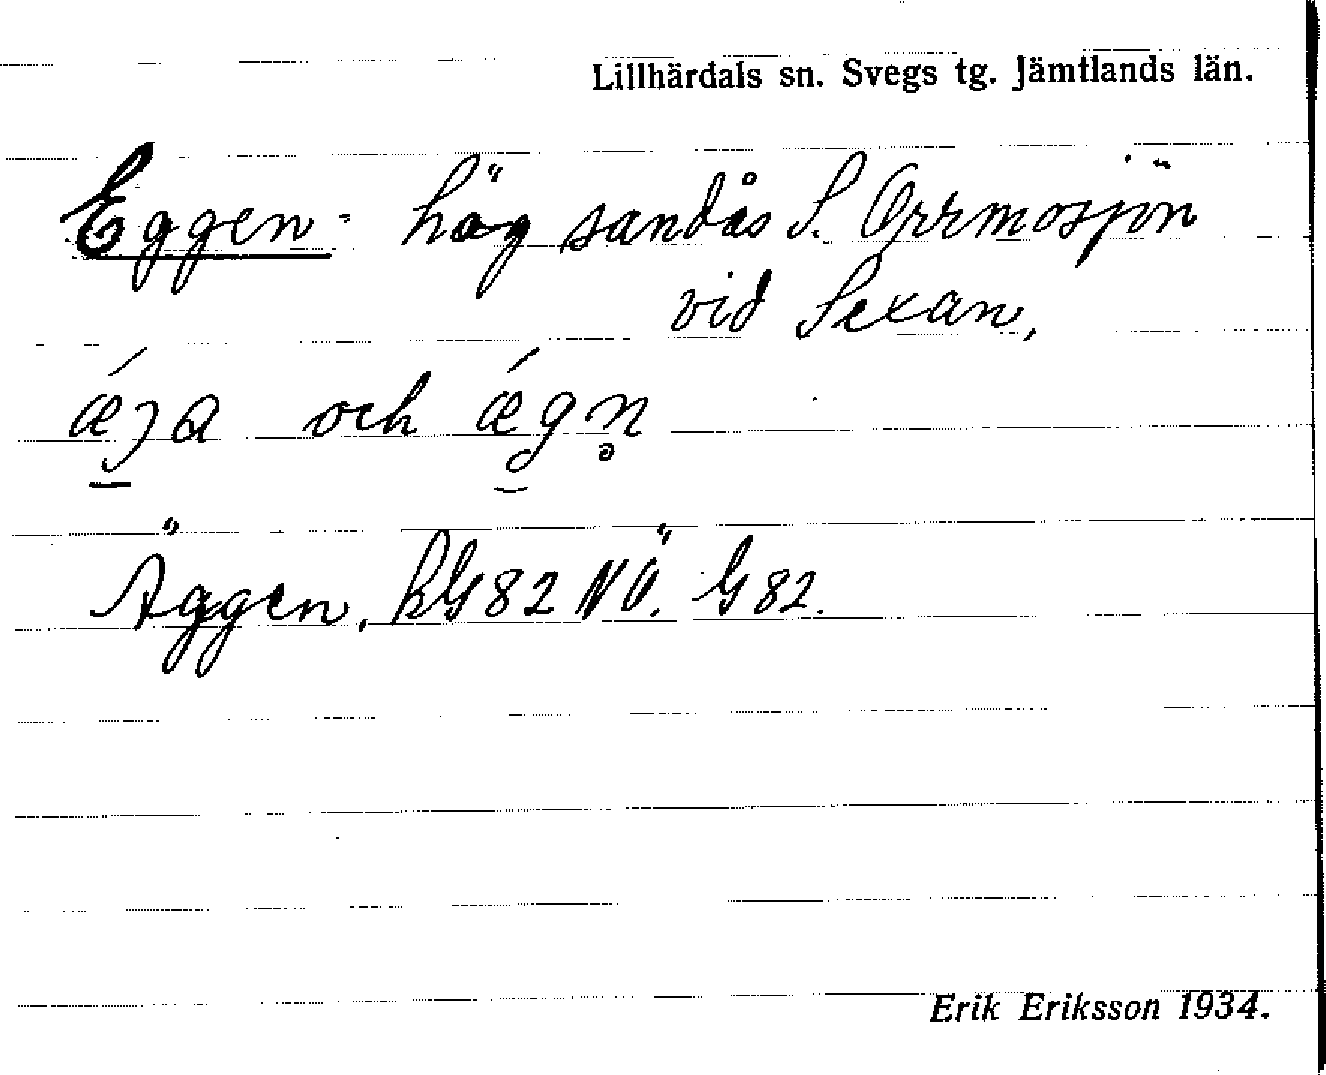 Lillhärdals sn. Svegs tg. Jämtlands län.
Eggen - hög sandås S. Orrmosjön
vid Sexan,
ǽȷa och ǽgn̥
Äggen, kG82 NÖ. G82.
Erik Eriksson 1934.